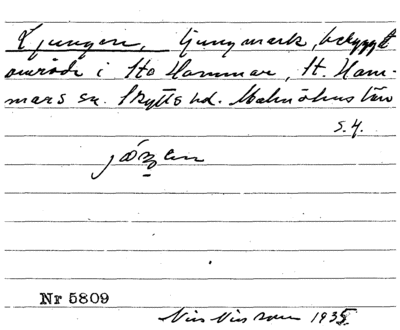 Ljungen, ljungmark, bebyggt
område i Sto Hammar, St. Ham-
mars sn. Skytts hd. Malmöhus län
s. 4.
Nr 5809
Nils Nilsson 1935.